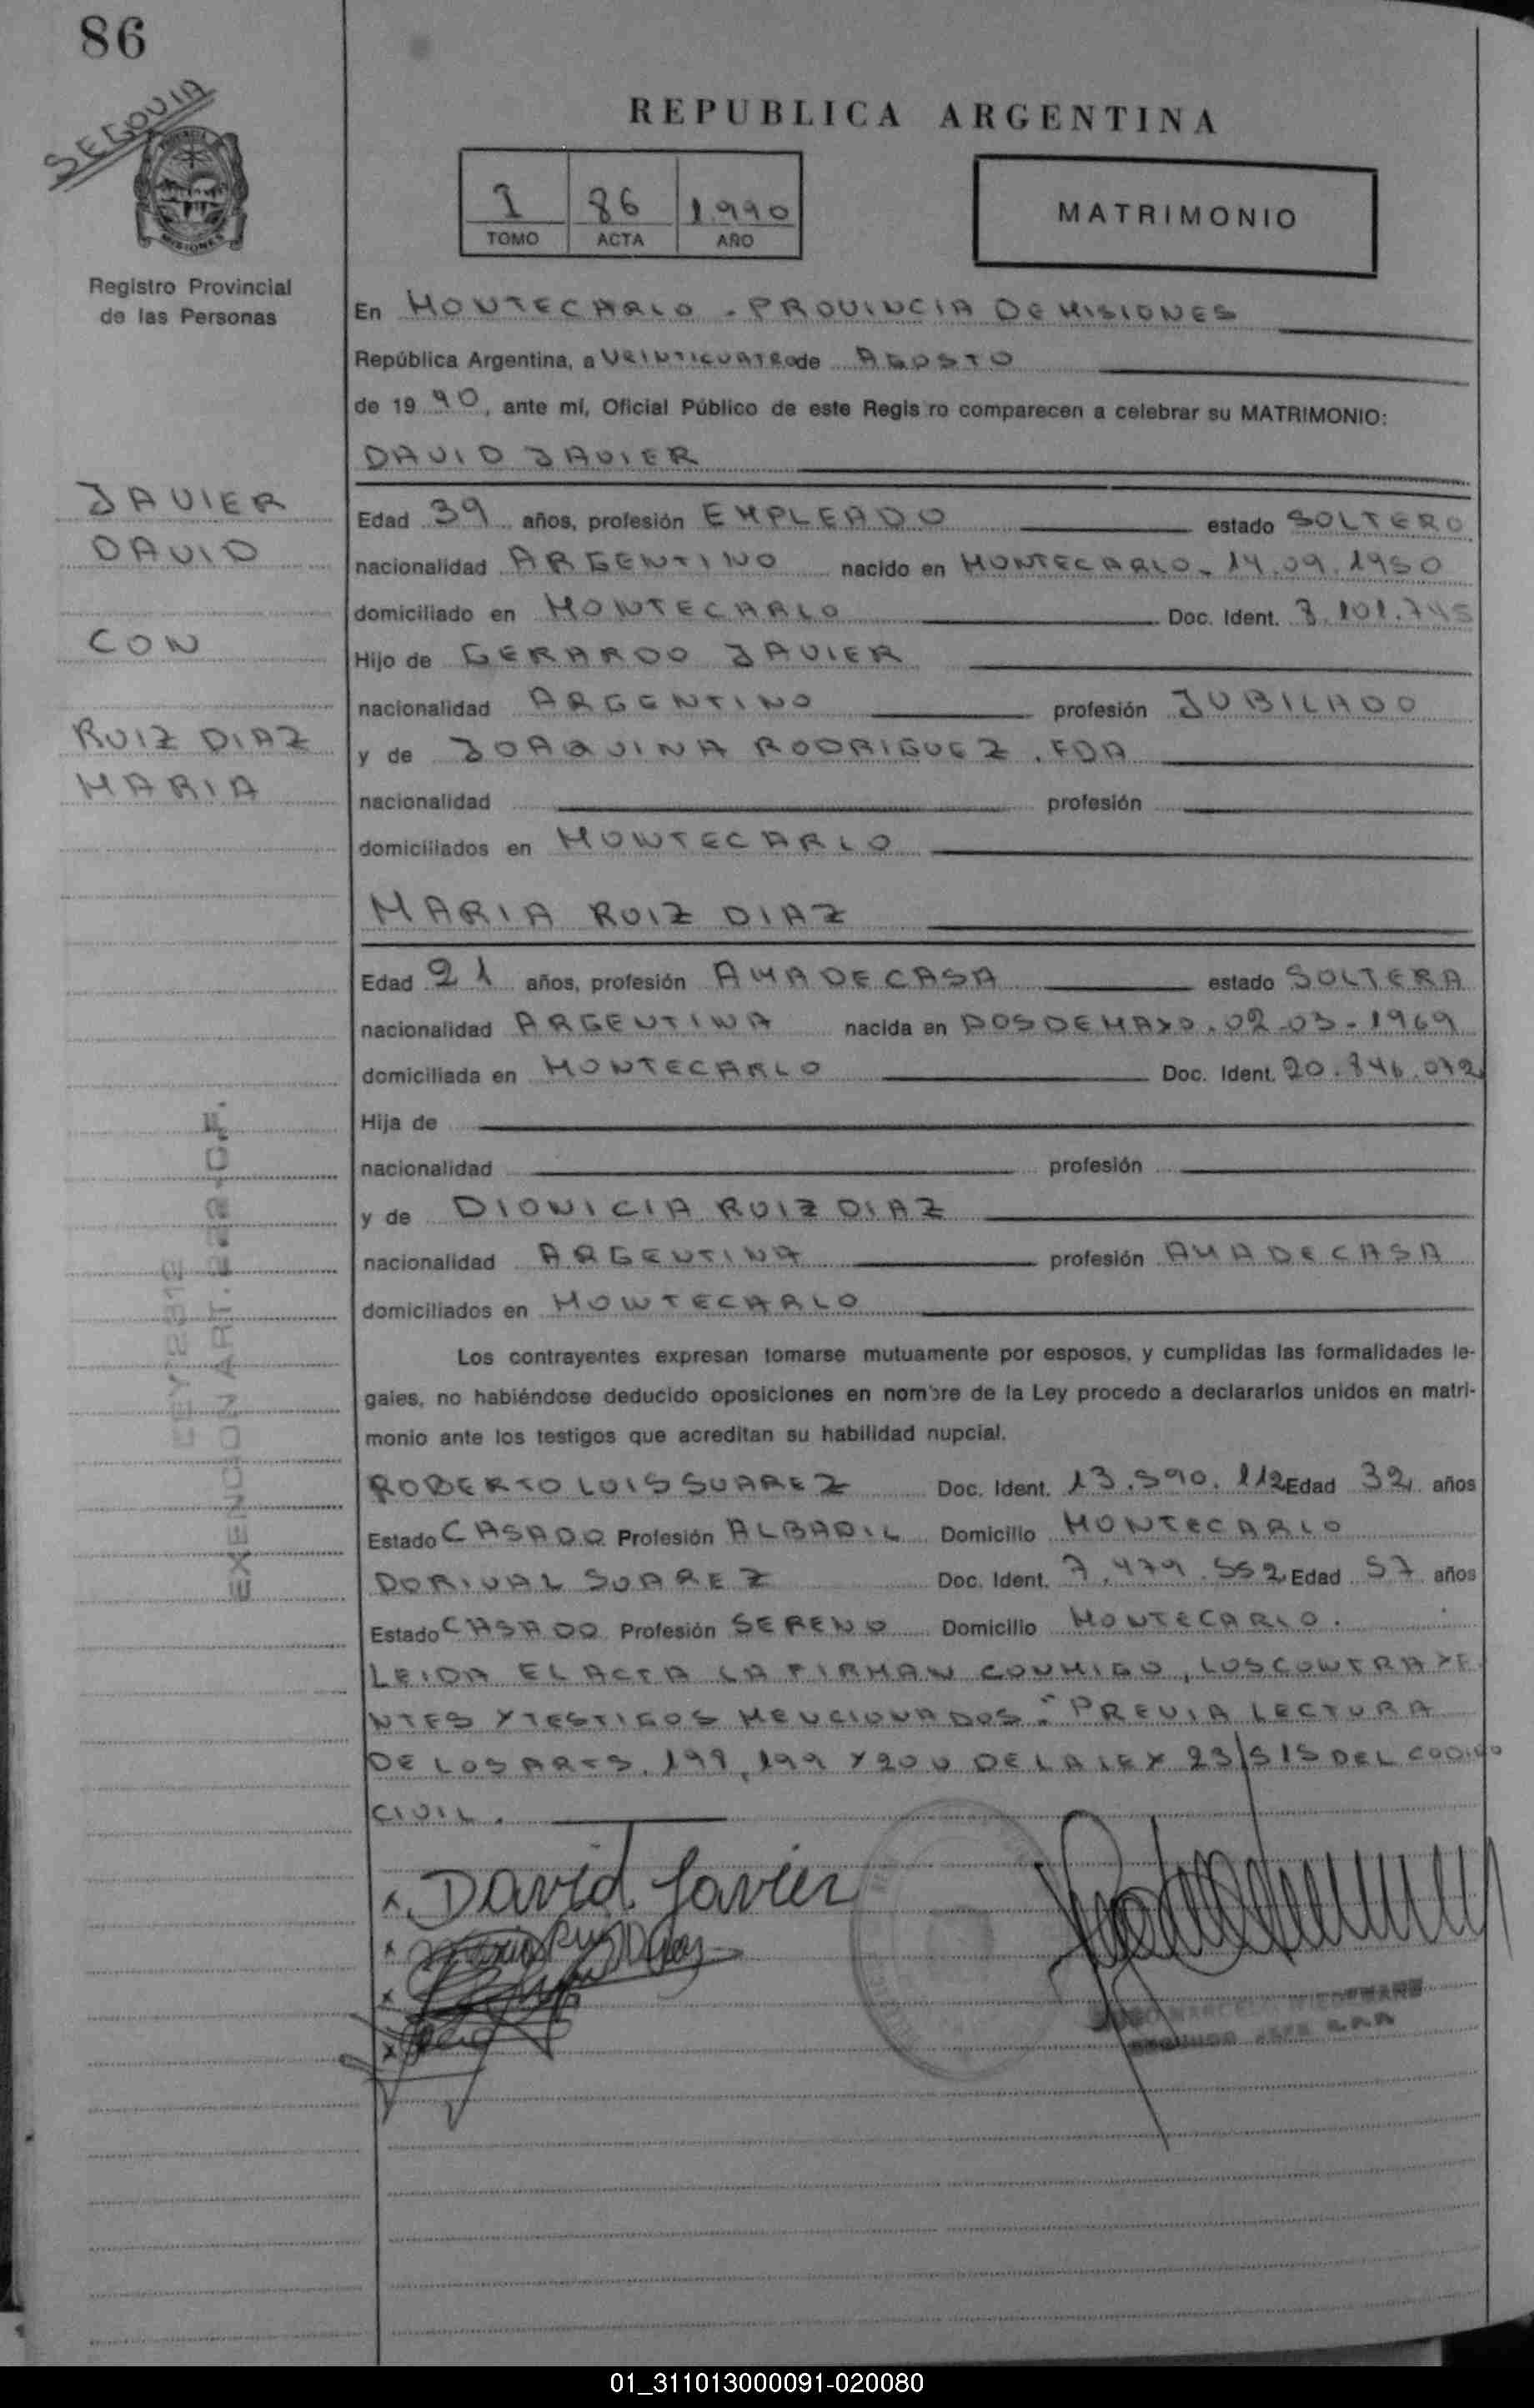 86
SEGOVIA
MISIONES
Registro Provincial
de las Personas
REPUBLICA ARGENTINA
I 86 1990
TOMO ACTA AÑO
MATRIMONIO
En MONTECARLO - PROVINCIA DE MISIONES
República Argentina, a VEINTICUATRO de AGOSTO
de 19 90, ante mí, Oficial Público de este Regis ro comparecen a celebrar su MATRIMONIO:
DAVID JAVIER
JAVIER
DAVID
CON
RUIZ DIAZ
MARIA
Edad 39 años, profesión EMPLEADO estado SOLTERO
nacionalidad ARGENTINO nacido en MONTECARLO - 14.09.1950
domiciliado en MONTECARLO Doc. Ident. 8.101.745
Hijo de GERARDO JAVIER
nacionalidad ARGENTINO profesión JUBILADO
y de JOAQUINA RODRIGUEZ . FDA
nacionalidad profesión
domiciliados en MONTECARLO
MARIA RUIZ DIAZ
Edad 21 años, profesión AMA DE CASA estado SOLTERA
nacionalidad ARGENTINA nacida en DOS DE MAYO . 02-03-1969
domiciliada en MONTECARLO Doc. Ident. 20.846.072
Hija de
nacionalidad profesión
y de DIONICIA RUIZ DIAZ
nacionalidad ARGENTINA profesión AMA DE CASA
domiciliados en MONTECARLO
EXENCION ART.
Los contrayentes expresan tomarse mutuamente por esposos, y cumplidas las formalidades le-
gales, no habiéndose deducido oposiciones en nombre de la Ley procedo a declararlos unidos en matri-
monio ante los testigos que acreditan su habilidad nupcial.
ROBERTO LUIS SUAREZ Doc. Ident. 13.590.112 Edad 32 años
Estado CASADO Profesión ALBAÑIL Domicilio MONTECARLO
DORIVAL SUAREZ Doc. Ident. 7.479.552 Edad 57 años
Estado CASADO Profesión SERENO Domicilio MONTECARLO.
LEIDA EL ACTA LA FIRMAN CONMIGO, LOS CONTRAYE
NTES Y TESTIGOS MENCIONADOS.- PREVIA LECTURA
DE LOS ARTS. 198, 199 Y 200 DE LA LEY 23/515 DEL CODIGO
CIVIL.
x. David Javier
x Maria Ruiz Diaz
x
x
01_311013000091-020080